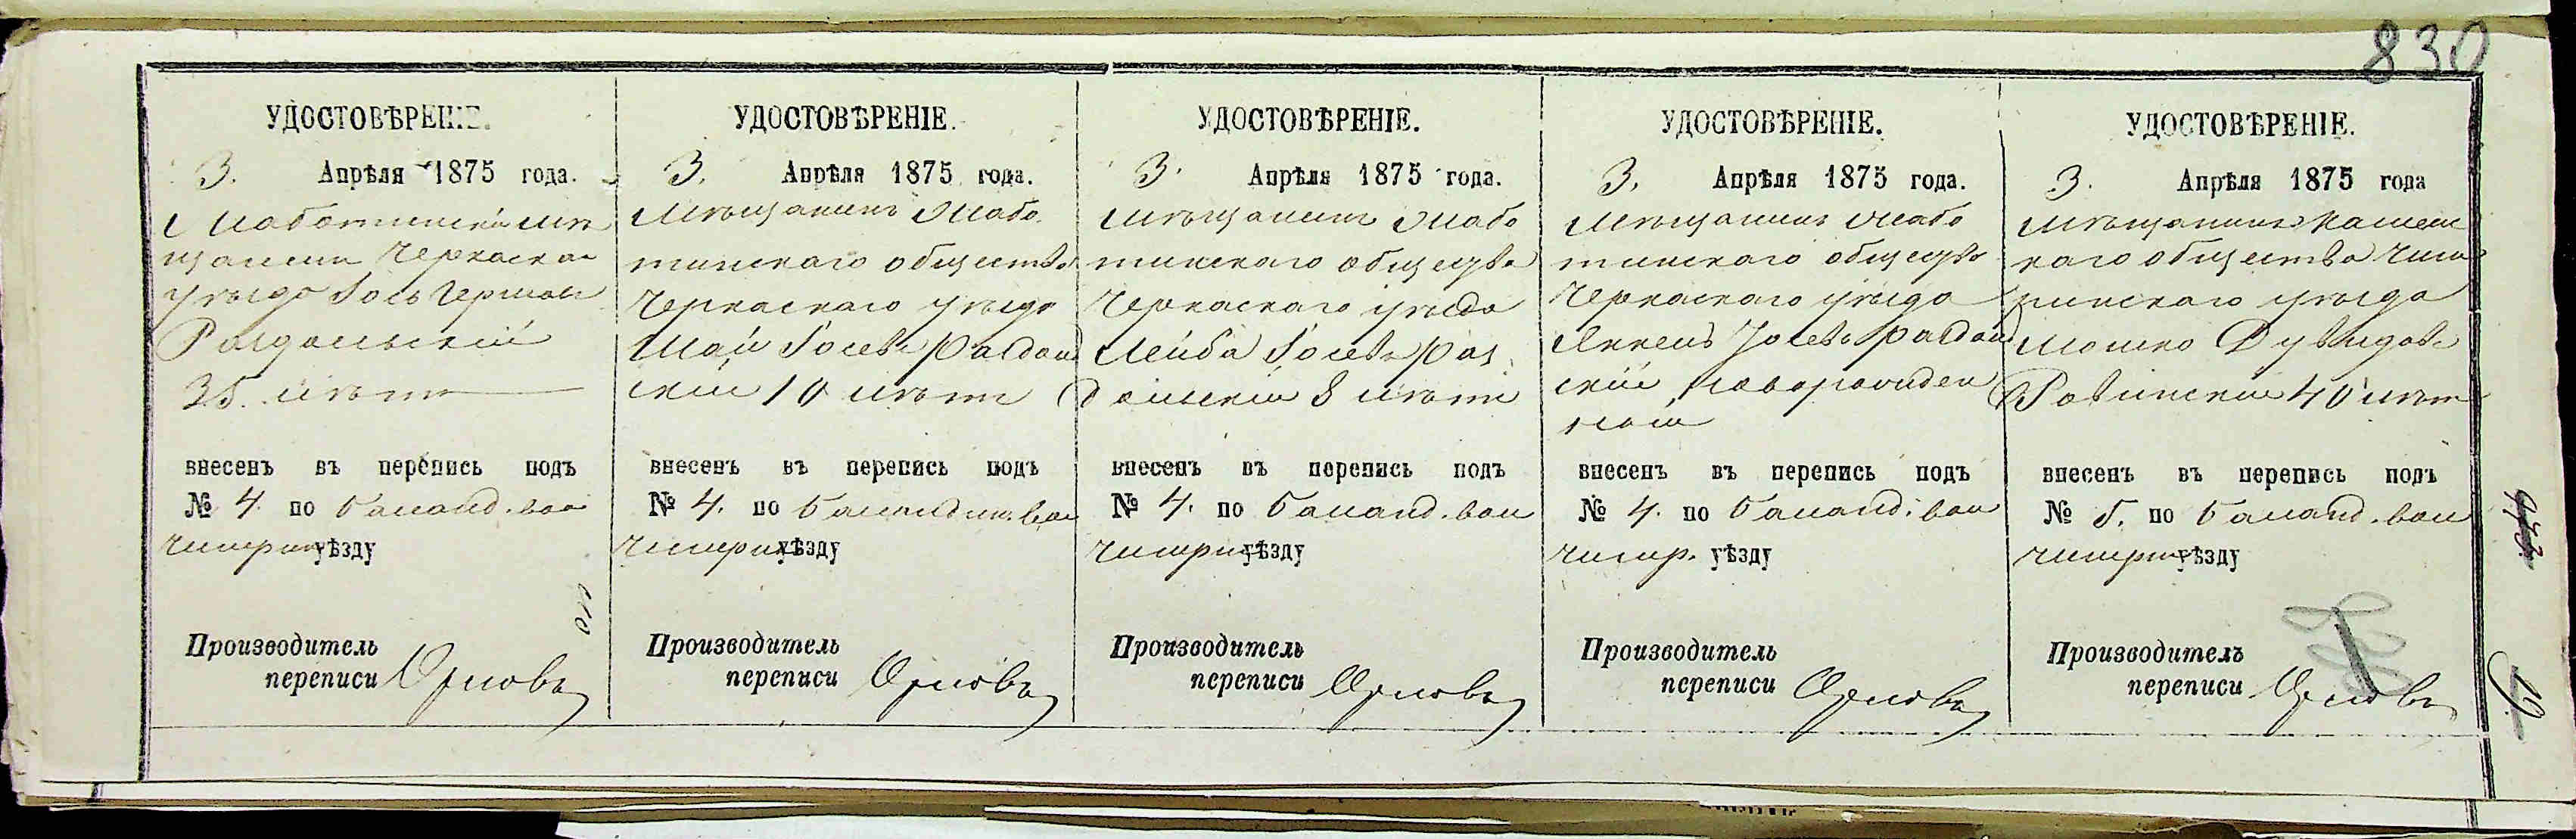 830
УДОСТОВѢРЕНІЕ.
3. Апрѣля 1875 года.
Смѣлотинскій мѣ
щанин Черкаскаг
уѣзда Іось Гершов
Раздольскій
35. лѣтъ
внесенъ въ перепись подъ
№ 4. по Баланд. вол
Чигрин уѣзду
Производитель
переписи Орловъ
УДОСТОВѢРЕНІЕ.
3. Апрѣля 1875 года.
Мѣщанинъ Смѣло
тинскаго общества
Черкаскаго уѣзда
Шай Іосевъ Раздол
скій 10 лѣтъ
внесенъ въ перепись подъ
№ 4. по Баландин. вол
Чигрин уѣзду
Производитель
переписи Орловъ
УДОСТОВѢРЕНІЕ.
3. Апрѣля 1875 года.
Мѣщанинъ Смѣло
тинскаго общества
Черкаскаго уѣзда
Лейба Іосевъ Раз
дольскій 8 лѣтъ
внесенъ въ перепись подъ
№ 4. по Баланд. вол
Чигрин уѣзду
Производитель
переписи Орловъ
УДОСТОВѢРЕНІЕ.
3. Апрѣля 1875 года.
Мѣщанинъ Смѣло
тинскаго общества
Черкаскаго уѣзда
Янкель Іосевъ Раздол
скій новорожден
ный
внесенъ въ перепись подъ
№ 4. по Баланд. вол
Чигр. уѣзду
Производитель
переписи Орловъ
УДОСТОВѢРЕНІЕ.
3. Апрѣля 1875 года
Мѣщанинъ Камен
каго общества Чиги
ринскаго уѣзда
Мошко Дувидовъ
Ровинскій 40 лѣтъ
внесенъ въ перепись подъ
№ 5. по Баланд. вол
Чигрин уѣзду
Производитель
переписи Орловъ